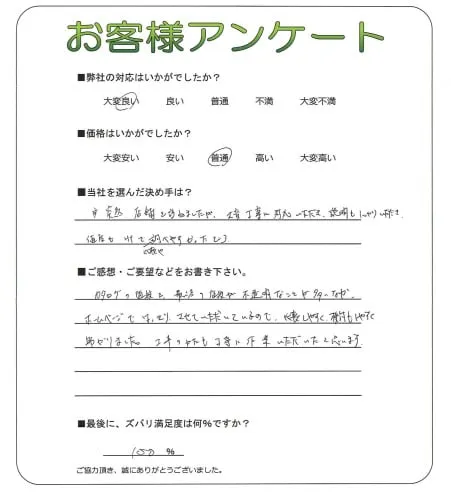 お客様アンケート
■弊社の対応はいかがでしたか？
大変良い 良い 普通 不満 大変不満
■価格はいかがでしたか？
大変安い 安い 普通 高い 大変高い
■当社を選んだ決め手は？
店舗を 丁寧に対応いただき、説明もしっかりいただき、
■ご感想・ご要望などをお書き下さい。
カタログの値段と、 の値段が不透明なことが多いなか、
ホームページではっきりさせていただいているので、
助かりました。工事のかたも丁寧に作業いただいたと思います。
■最後に、ズバリ満足度は何％ですか？
100 %
ご協力頂き、誠にありがとうございました。